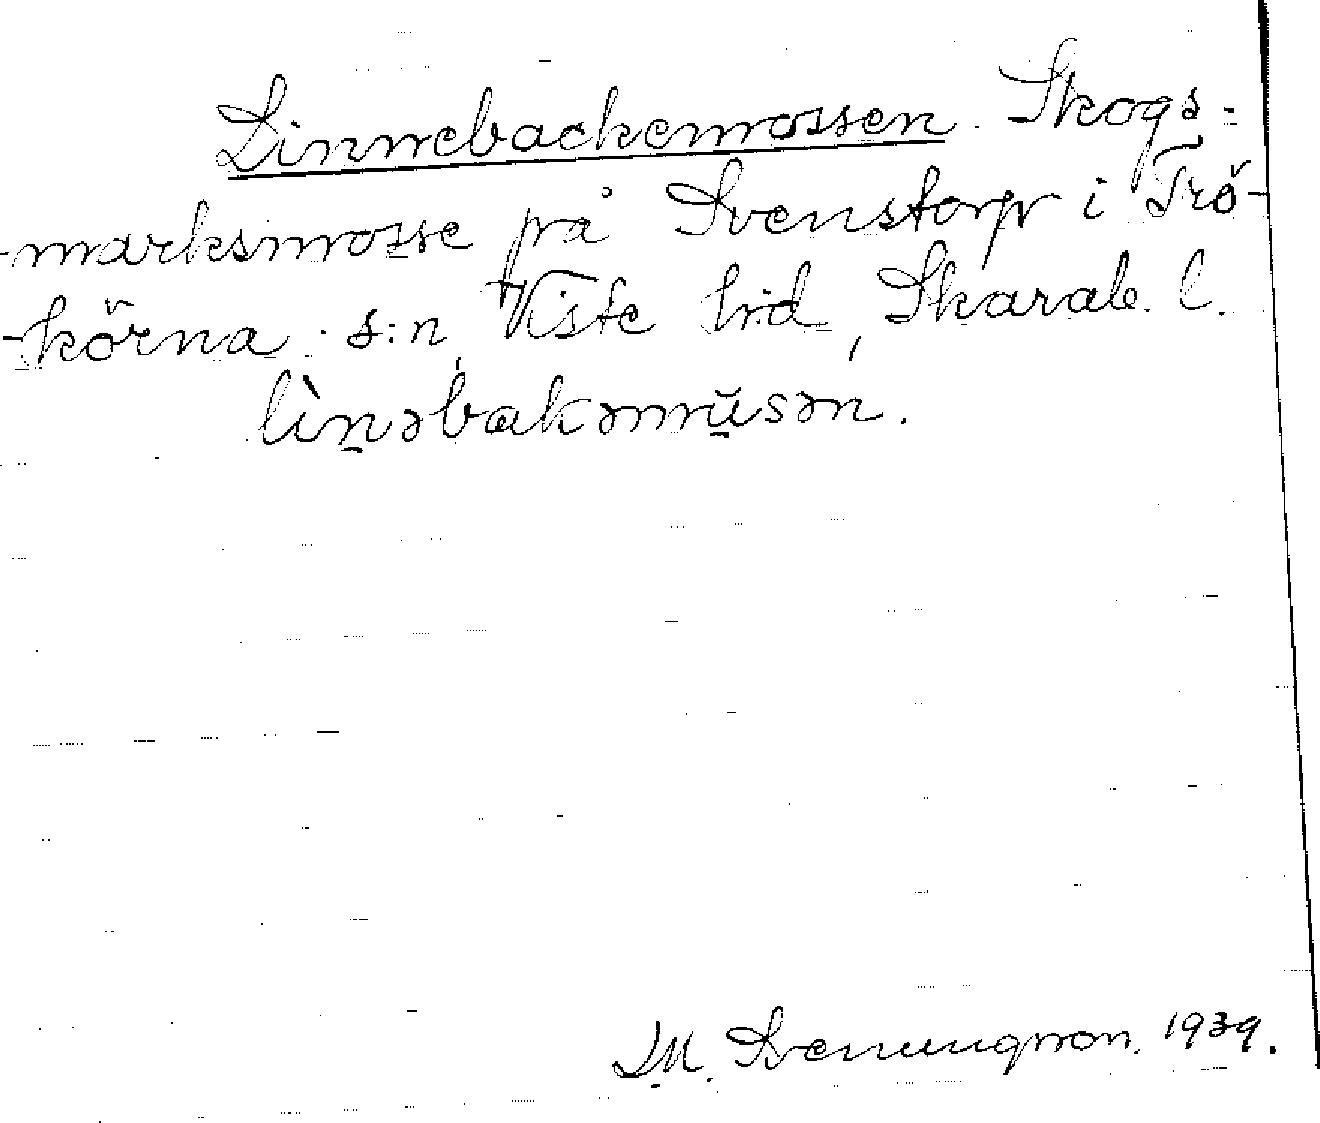 Linnebackemossen. Skogs-
-marksmosse på Svenstorp i Trö-
-körna s:n, Viste hd, Skarab. l.
lìn̠əbakəmŭsən.
M. Svenungson. 1939.